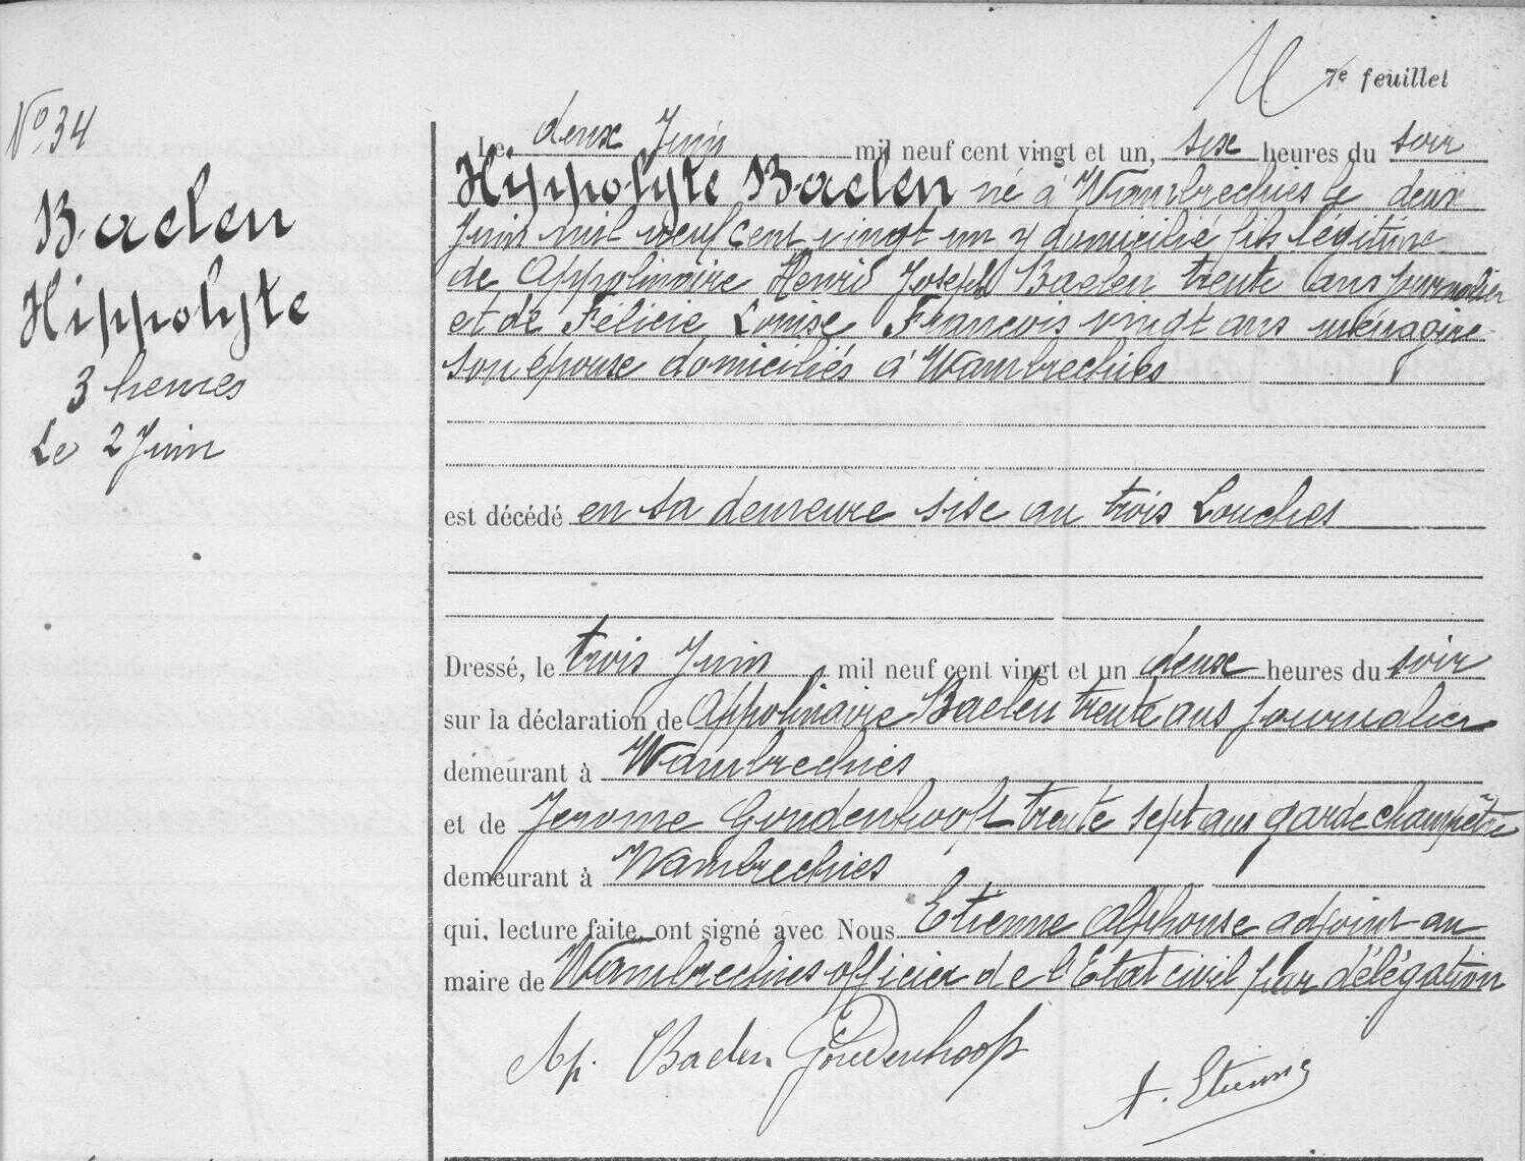 7e feuillet
N° 34
Baelen
Hippolyte
3 heures
Le 2 Juin
Le deux Juin mil neuf cent vingt et un, six heures du soir
Hippolyte Baelen né à Wambrechies le deux
Juin mil neuf cent vingt un y domicilié fils légitime
de Appolinaire Henri Joseph Baelen trente ans journalier
et de Félicie Louise Francois vingt ans ménagère
son épouse domiciliés à Wambrechies
est décédé en sa demeure sise au trois Louches
Dressé, le trois Juin, mil neuf cent vingt et un deux heures du soir
sur la déclaration de Appolinaire Baelen trente ans journalier
demeurant à Wambrechies
et de Jerome Goudenhooft trente sept ans garde champêtre
demeurant à Wambrechies
qui, lecture faite, ont signé avec Nous Etienne Alphonse adjoint au
maire de Wambrechies officier de l'Etat civil par délégation
Ap. Baelen Goudenhooft
A. Etienne